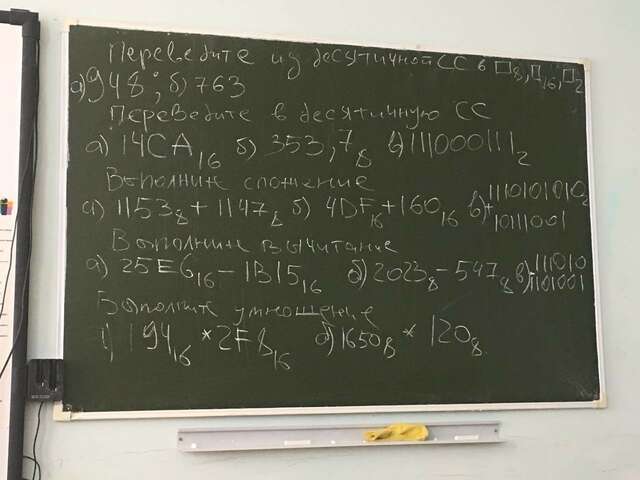 Переведите из десятичной СС в □₈, □₁₆, □₂
а) 948; б) 763
Переведите в десятичную СС
а) 14CA₁₆ б) 353,7₈ в) 111000111₂
Выполните сложение
а) 1153₈ + 1147₈ б) 4DF₁₆ + 160₁₆ в) + 111010101₂
10111001
Выполните вычитание
а) 25E6₁₆ − 1B15₁₆ б) 2023₈ − 547₈ в) − 111010
101001
Выполните умножение
а) 194₁₆ * 2F8₁₆ б) 1650₈ * 120₈